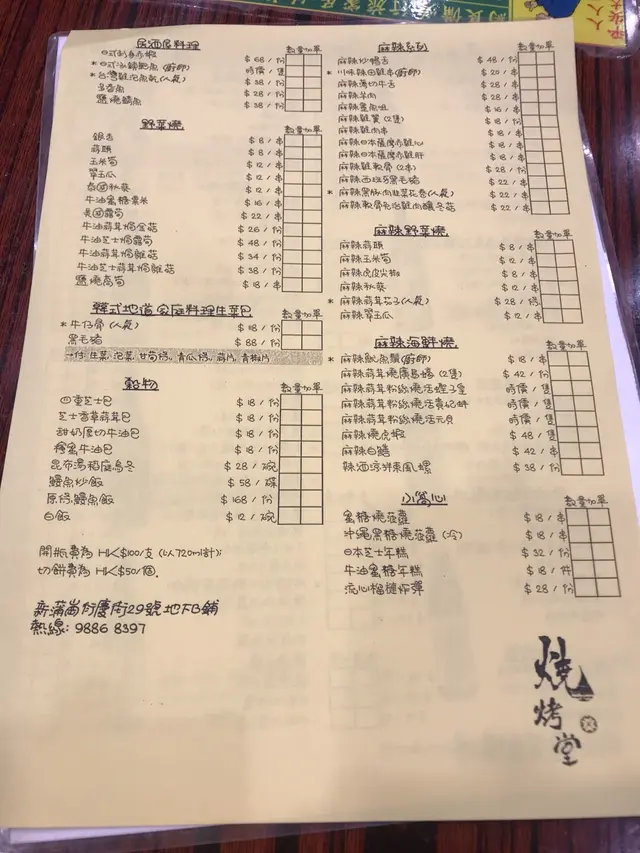 居酒屋料理 數量 加單
日式刺身赤蝦 $68/份
*日式冰鎮鮑魚(廚師) 時價/隻
*台灣雞泡魚乾(人氣) $38/份
多春魚 $28/份
鹽燒鯖魚 $38/份
野菜燒 數量 加單
銀杏 $8/串
蒜頭 $8/串
玉米筍 $12/串
翠玉瓜 $12/串
秋葵 $12/串
牛油蜜糖粟米 $16/串
露筍 $22/串
牛油蒜茸焗金菇 $26/份
牛油芝士焗露筍 $48/份
牛油蒜茸焗雜菇 $34/份
牛油芝士焗雜菇 $38/份
鹽燒萵筍 $18/串
韓式地道家庭料理生菜包 數量 加單
*牛仔骨(人氣) $18/份
黑毛豬 $88/份
→付:生菜,泡菜,甘筍條,青瓜條,蒜片,青椒片
穀物 數量 加單
四重芝士包 $18/份
芝士香草蒜茸包 $18/份
甜奶厚切牛油包 $18/份
檸蜜牛油包 $18/份
昆布湯稻庭烏冬 $28/碗
鰻魚炒飯 $58/碟
原條鰻魚飯 $168/份
白飯 $12/碗
開瓶費為 HK$100/支(以720ml計);
切餅費為 HK$50/個.
新蒲崗衍慶街29號地下B舖
熱線: 9886 8397
麻辣系列 數量 加單
麻辣炒鴨舌 $48/份
*川味辣田雞串(廚師) $20/串
麻辣薄切牛舌 $28/串
麻辣羊肉 $28/串
麻辣墨魚咀 $16/串
麻辣雞翼(2隻) $18/份
麻辣雞肉串 $18/串
麻辣日本薩摩赤雞心 $18/串
麻辣日本薩摩赤雞肝 $18/串
麻辣雞軟骨(2串) $28/份
麻辣西班牙黑毛豬 $22/串
*麻辣黑豚肉韭菜花卷(人氣) $22/串
麻辣軟骨免治雞肉釀冬菇 $22/串
麻辣野菜燒 數量 加單
麻辣蒜頭 $8/串
麻辣玉米筍 $12/串
麻辣虎皮尖椒 $8/串
麻辣秋葵 $12/串
*麻辣蒜茸茄子(人氣) $28/份
麻辣翠玉瓜 $12/串
麻辣海鮮燒 數量 加單
*麻辣魷魚鬚(廚師) $18/串
麻辣蒜茸燒廣島蠔(2隻) $42/份
麻辣蒜茸粉絲燒活蟶子皇 時價/隻
麻辣蒜茸粉絲燒活貴妃蚌 時價/份
麻辣蒜茸粉絲燒活元貝 時價/隻
麻辣燒虎蝦 $48/隻
麻辣白鱔 $42/串
辣酒涼拌東風螺 $38/份
小窩心 數量 加單
蜜糖燒菠蘿 $18/串
沖繩黑糖燒菠蘿(冷) $18/串
日本芝士年糕 $32/份
牛油蜜糖年糕 $18/件
流心榴槤炸彈 $28/份
燒烤堂